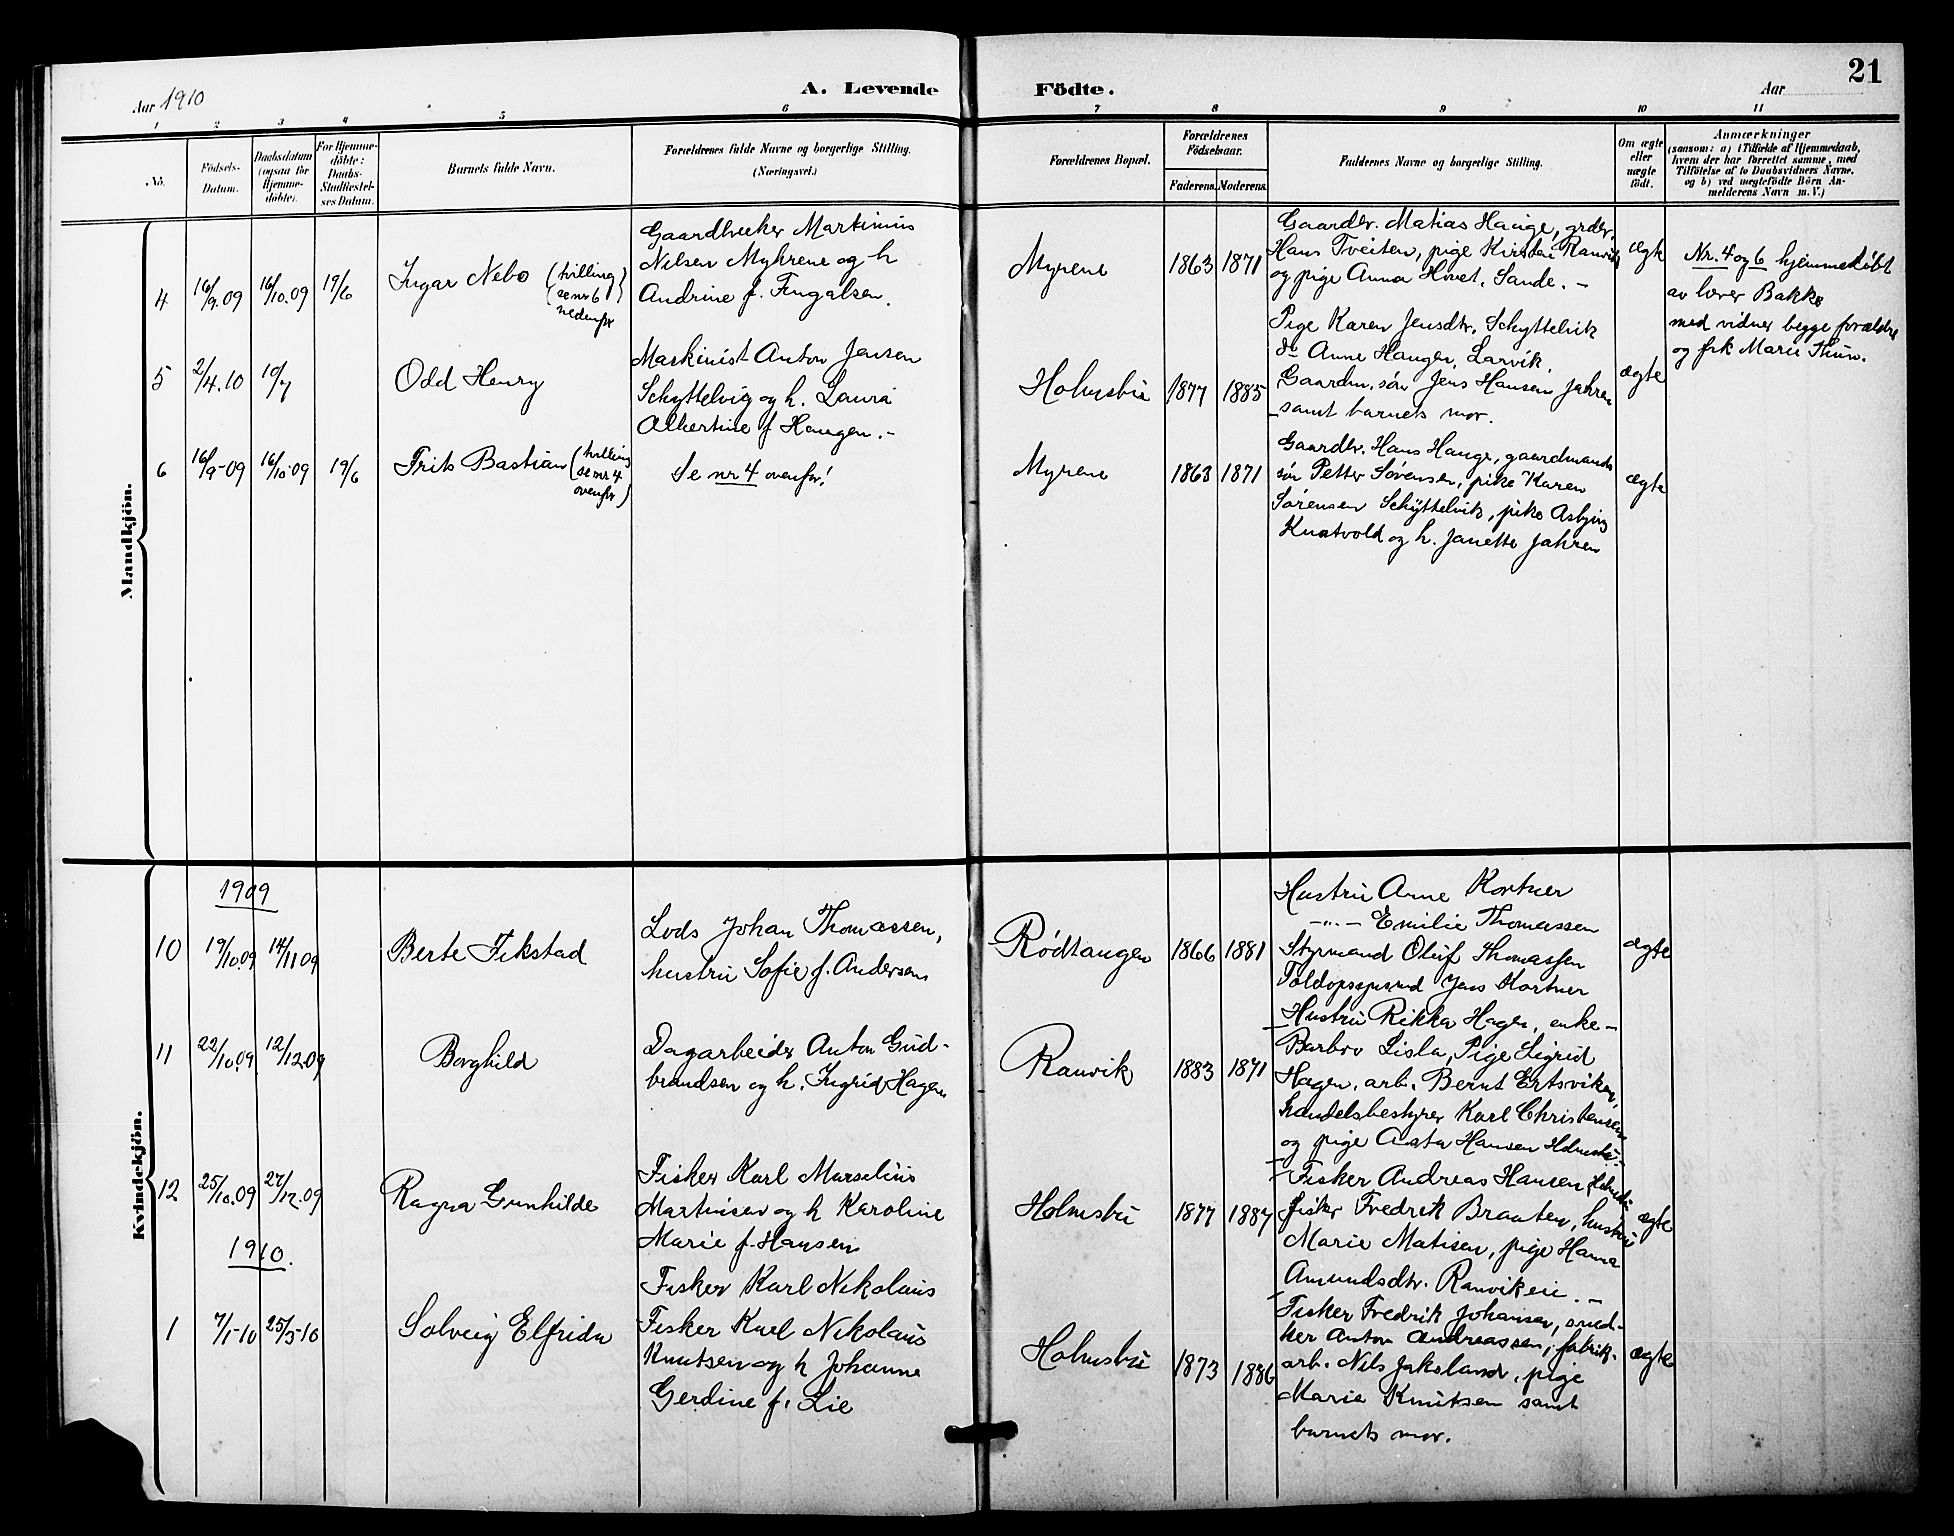 21
Aar 1910
A. Levende Födte.
Aar
1 2 3 4 5 6 7 8 9 10 11
No.
Födsels-
Datum.
Daabsdatum
(ogsaa for
Hjemme-
döbte).
For Hjemme-
döbte:
Daabs-
Stadfæstel-
ses Datum.
Barnets fulde Navn.
Forældrenes fulde Navne og borgerlige Stilling.
(Næringsvei.)
Forældrenes Bopæl.
Forældrenes
Födselsaar.
Faderens. Moderens.
Faddernes Navne og borgerlige Stilling.
Om ægte
eller
uægte
födt.
Anmærkninger
(saasom: a) i Tilfælde af Hjemmedaab,
hvem der har forrettet samme, med
Tilföielse af to Daabsvidners Navne,
og b) ved uægtefödte Börn An-
melderens Navn m. V.)
Mandkjön.
4 16/9.09 16/10.09 19/6
Ingar Nebo (tvilling
se nr 6
nedenfor)
Gaardbruker Martinius
Nilsen Myhrene og h
Andrine f. Fingalsen.
Myrene 1863 1871
Gaardbr. Matias Hauge, grdbr.
Hans Tveiten, pige Kirsten Ranvik
og pige Anna Hovet, Sande. –
ægte
Nr. 4 og 6 hjemmedøbt
av lærer Bakke
med vidner begge forældre
og frk Marie Thun.
5 2/4.10 10/7
Odd Henry
Maskinist Anton Jensen
Schyttelvig og h. Laura
Albertine f Haugen. –
Holmsbu 1877 1885
Pige Karen Jensdtr. Schyttelvik
do Anne Haugen, Larvik.
Gaardm. søn Jens Hansen Jahren
samt barnets mor.
ægte
6 16/9-09 16/10-09 19/6
Frits Bastian (tvilling
se nr 4
ovenfor)
Se nr 4 ovenfor!
Myrene 1863 1871
Gaardbr. Hans Hauge, gaardmands
søn Petter Sørensen, pike Karen
Sørensen Schyttelvik, pike Asbjørg
Knatvold og h. Janette Jahren
ægte
Kvindekjön.
1909
10 19/10.09 14/11 09
Berte Fikstad
Lods Johan Thomassen,
hustru Sofie f. Andersen
Rødtangen 1866 1881
Hustru Anne Kortner
–"– Emilie Thomassen
Styrmand Oluf Thomassen
Toldopsynsmd Jens Kortner
ægte
11 22/10.09 12/12 09
Borghild
Dagarbeider Anton Gud-
brandsen og h. Ingrid Hagen
Ranvik 1883 1871
Hustru Rikka Hagen, enke
Barbro Lisla, Pige Sigrid
Hagen, arb. Bernt Ertsviken,
handelsbestyrer Karl Christensen
og pige Asta Hansen Holmsbu.
12 25/10.09 27/12.09
Ragna Gunhilde
Fisker Karl Marselius
Martinsen og h Karoline
Marie f. Hansen
Holmsbu 1877 1887
Fisker Andreas Hansen, Holmsbu
fisker Fredrik Braaten, hustru
Marie Matisen, pige Hanna
Amundsdtr. Ranvikeie. –
ægte
1910.
Fisker Karl Nikolaus
1 7/1-10 25/3-10
Solveig Elfrida
Fisker Karl Nikolaus
Knutsen og h Johanne
Gerdine f. Lie
Holmsbu 1873 1886
Fisker Fredrik Johansen, sned-
ker Anton Andreassen, fabrik-
arb. Nils Jaksland, pige
Marie Knutsen samt
barnets mor.
ægte